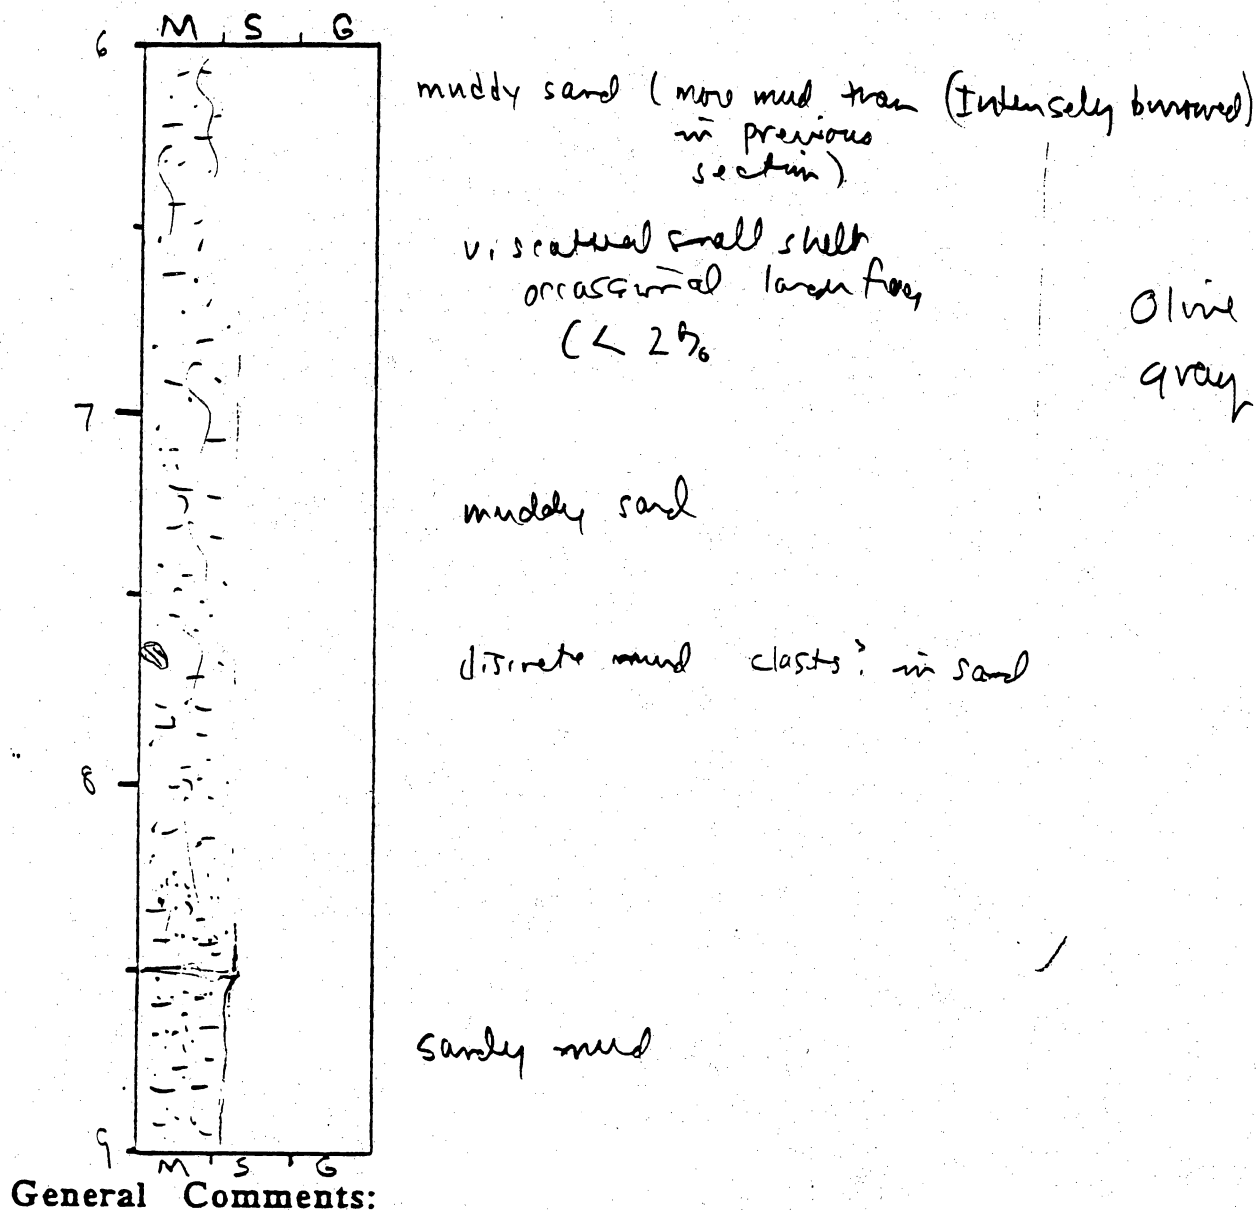 M S G
6
muddy sand (more mud than (Intensely burrowed)
in previous
section)
v. scattered small shell
occassional larger frags
(< 2%
Olive
gray
7
muddy sand
discrete mud clasts? in sand
8
sandy mud
9
M S G
General Comments: